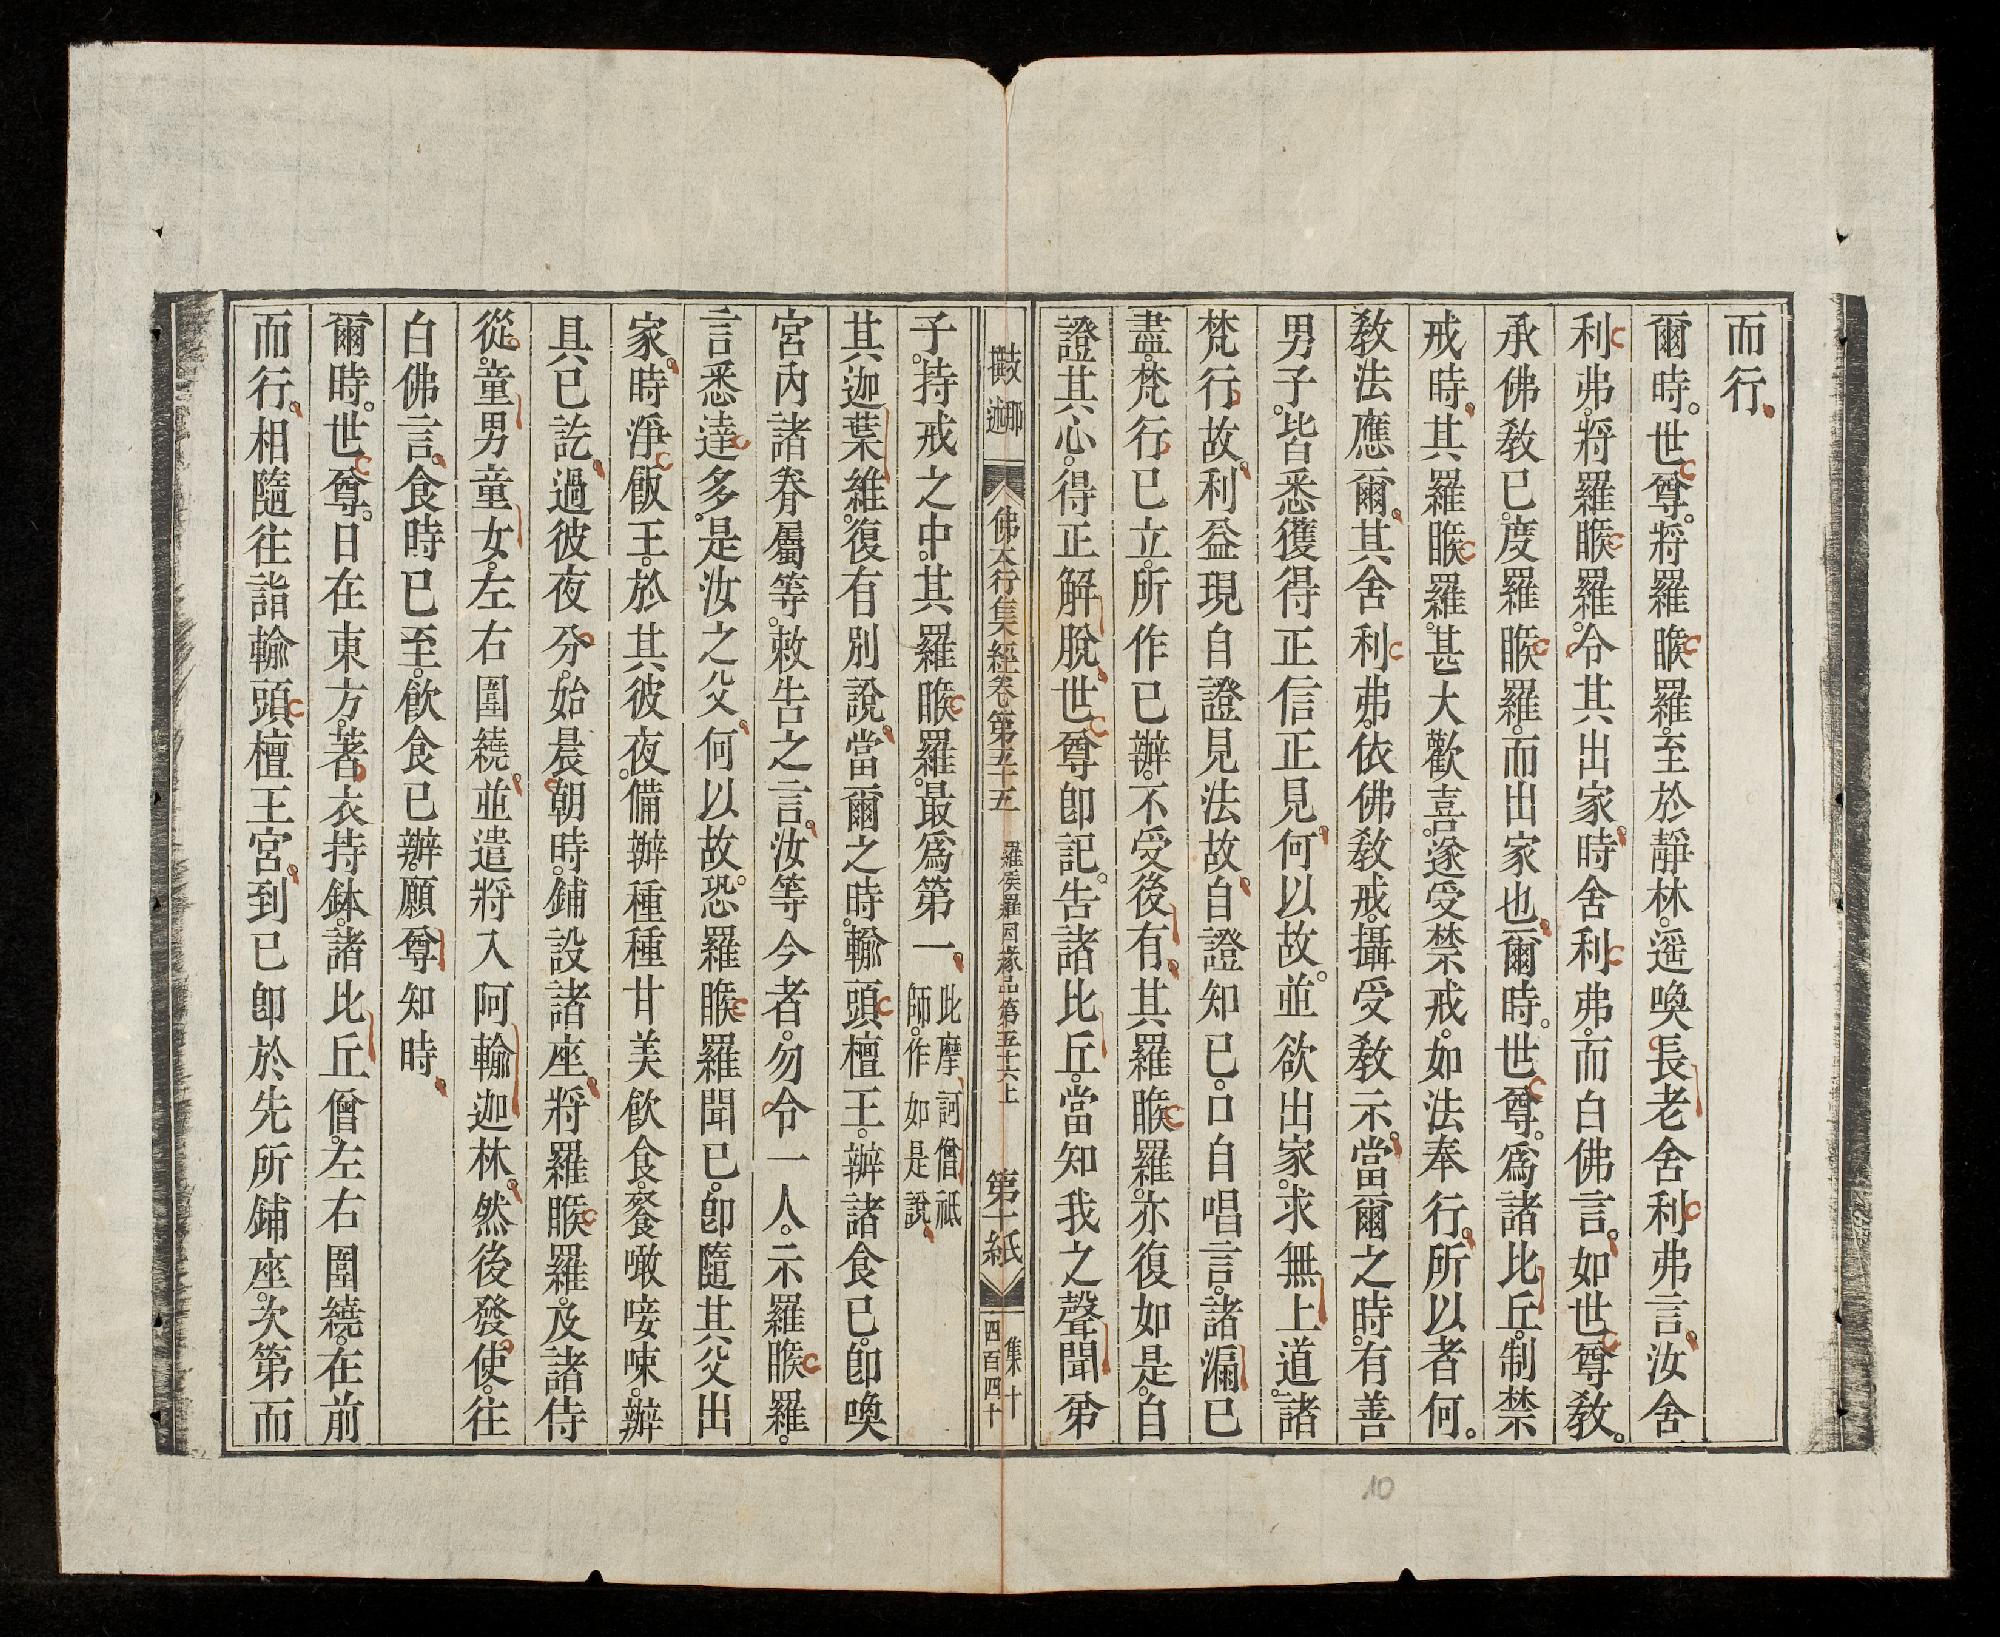 而行
爾時。世尊。將羅睺羅。至於靜林。遥喚長老舍利弗言。汝舍
利弗。將羅睺羅。令其出家。時舍利弗。而白佛言。如世尊教。
承佛教已。度羅睺羅。而出家也。爾時。世尊。爲諸比丘。制禁
戒時。其羅睺羅。甚大歡喜。遂受禁戒。如法奉行。所以者何。
教法應爾。其舍利弗。依佛教戒。攝受教示。當爾之時。有善
男子。皆悉獲得正信正見。何以故。並欲出家。求無上道。諸
梵行故。利益現自證見法故。自證知已。口自唱言。諸漏已
盡。梵行已立。所作已辦。不受後有。其羅睺羅。亦復如是。自
證其心。得正解脫。世尊卽記。告諸比丘。當知我之聲聞弟
佛本行集經卷第五十五 羅睺羅因緣品第五十六上 第十紙 集十 四百四十
子。持戒之中。其羅睺羅。最爲第一。此摩訶僧祇
師。作如是說
其迦葉維。復有別說。當爾之時。輸頭檀王。辦諸食已。卽喚
宮內諸眷屬等。敕告之言。汝等今者。勿令一人。示羅睺羅。
言悉達多。是汝之父。何以故。恐羅睺羅聞已。卽隨其父出
家。時淨飯王。於其彼夜。備辦種種甘美飲食。餐噉唼㖨。辦
具已訖。過彼夜分。始晨朝時。鋪設諸座。將羅睺羅。及諸侍
從。童男童女。左右圍繞。並遣將入阿輸迦林。然後發使。往
白佛言。食時已至。飲食已辦。願尊知時
爾時。世尊。日在東方。著衣持鉢。諸比丘僧。左右圍繞。在前
而行。相隨往詣輸頭檀王宮。到已卽於先所鋪座。次第而
10